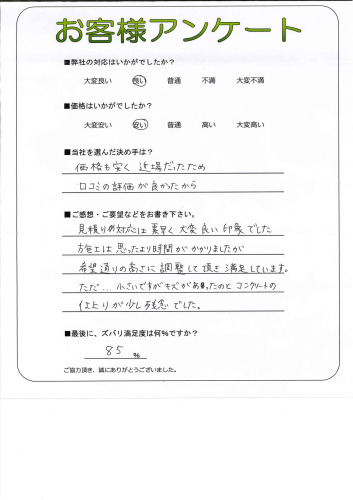 お客様アンケート
■弊社の対応はいかがでしたか?
大変良い 良い 普通 不満 大変不満
■価格はいかがでしたか?
大変安い 安い 普通 高い 大変高い
■当社を選んだ決め手は?
価格も安く 近場だったため
口コミの評価が良かったから
■ご感想・ご要望などをお書き下さい。
見積り対応は素早く大変良い印象でした
施工は思ったより時間がかかりましたが
希望通りの高さに調整して頂き満足しています。
ただ…小さいですがキズがあったのとコンクリートの
仕上りが少し残念でした。
■最後に、ズバリ満足度は何%ですか?
85 %
ご協力頂き、誠にありがとうございました。